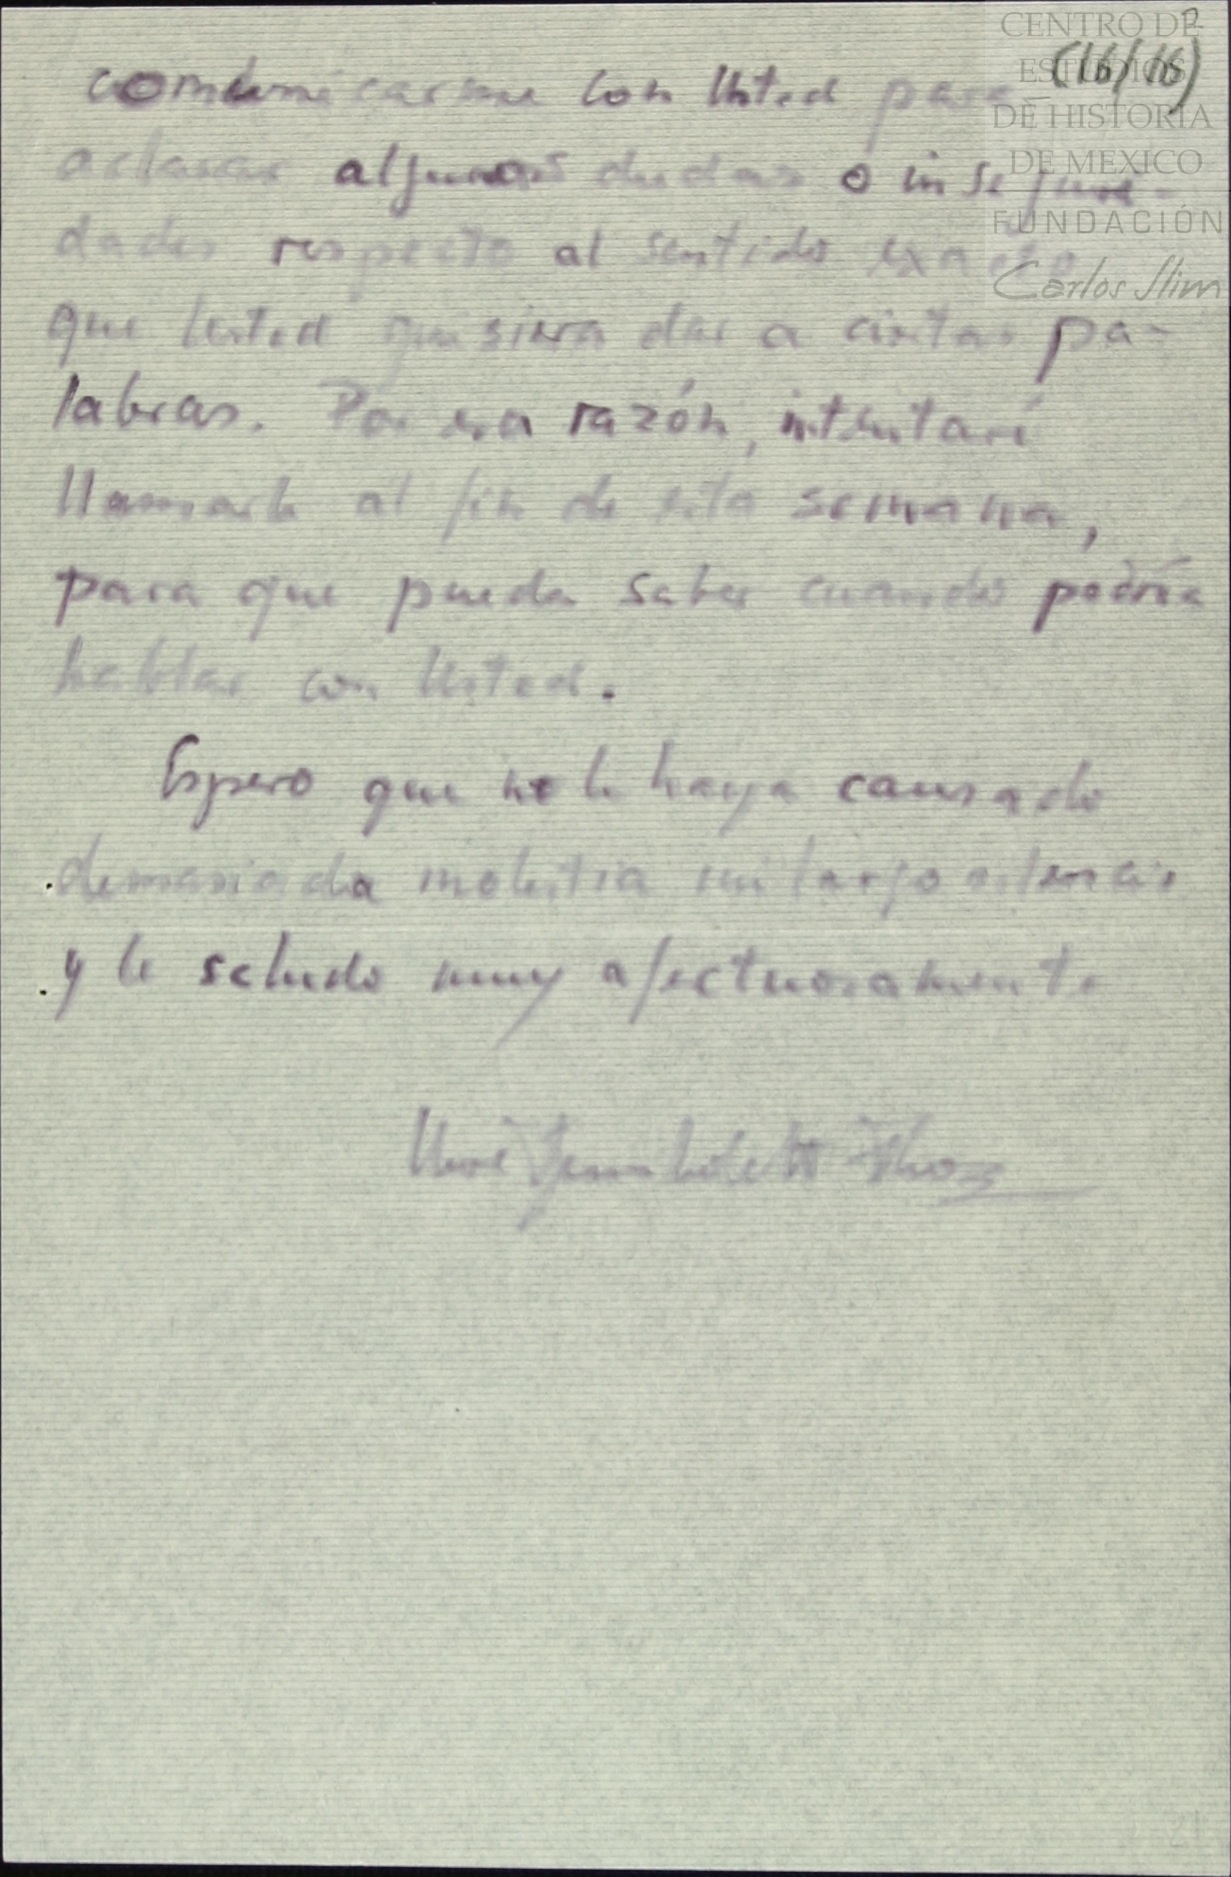 CENTRO DE
ESTUDIOS
DE HISTORIA
DE MEXICO
FUNDACIÓN
Carlos Slim
(16/16)
comunicarme con Usted para
aclarar algunas dudas o inseguri-
dades respecto al sentido exacto
que Usted quisiera dar a ciertas pa-
labras. Por esa razón, intentaré
llamarle al fin de esta semana,
para que pueda saber cuando podría
hablar con Usted.
Espero que no le haya causado
demasiada molestia mi largo silencio
y le saludo muy afectuosamente
21